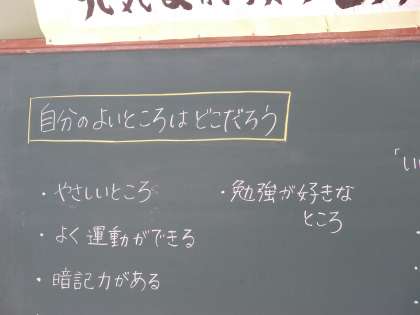 自分のよいところはどこだろう
・やさしいところ
・よく運動ができる
・暗記力がある
・勉強が好きな
ところ
「い